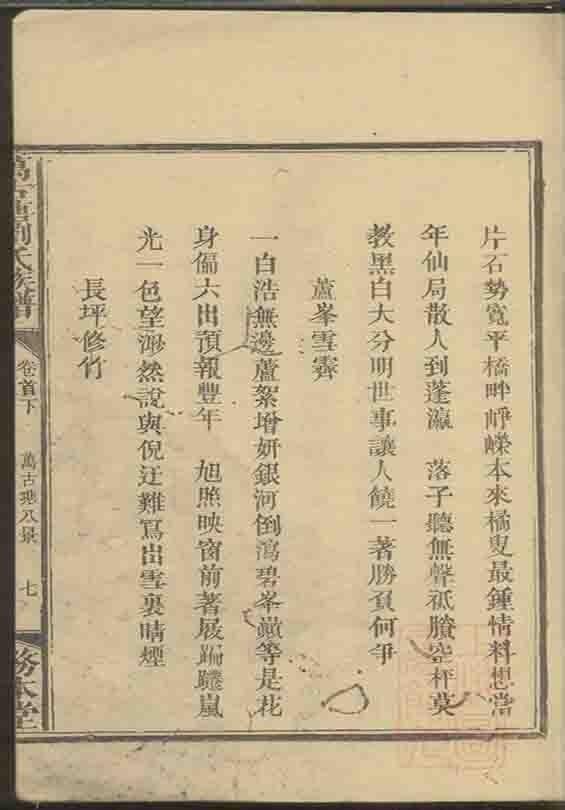 片石勢寬平橋畔崢嶸本來橘叟最鍾情料想當
年仙局散人到蓬瀛　落子聽無聲祇賸空枰莫
教黑白大分明世事讓人饒一著勝負何爭
蘆峯雪霽
一白浩無邊蘆絮增妍銀河倒瀉碧峯巔等是花
身偏六出預報豐年　旭照映窗前著屐蹁躚嵐
光一色望渺然說與倪迂難寫出雪裏晴煙
長坪修竹
劉氏族譜
卷首下
萬古塅八景
七
務本堂